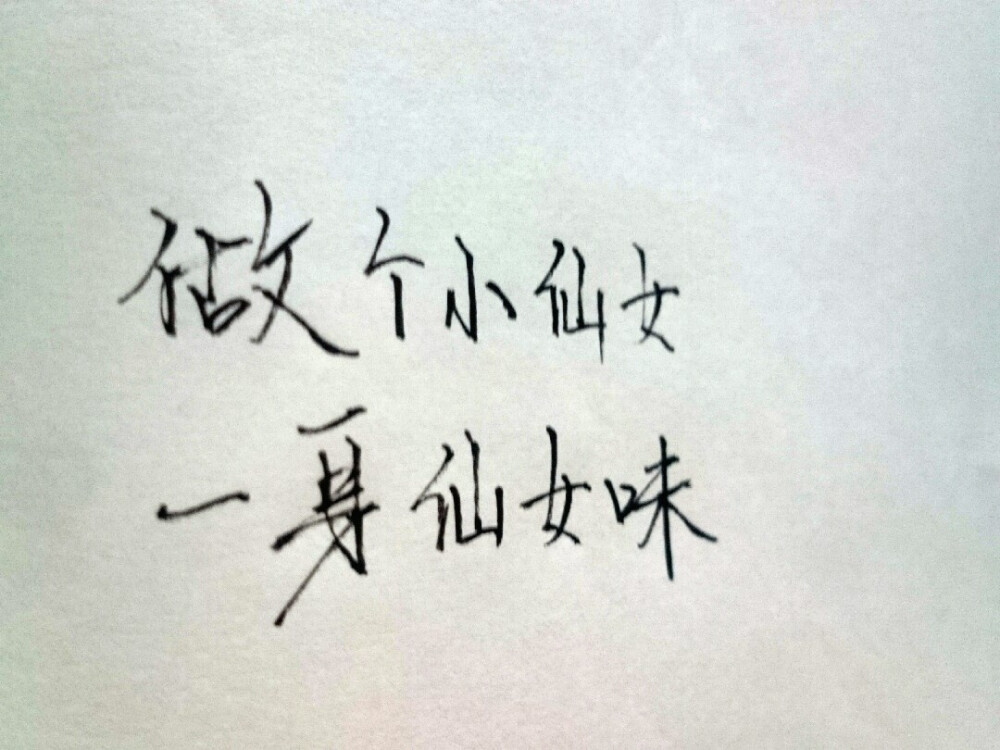 做个小仙女
一身仙女味